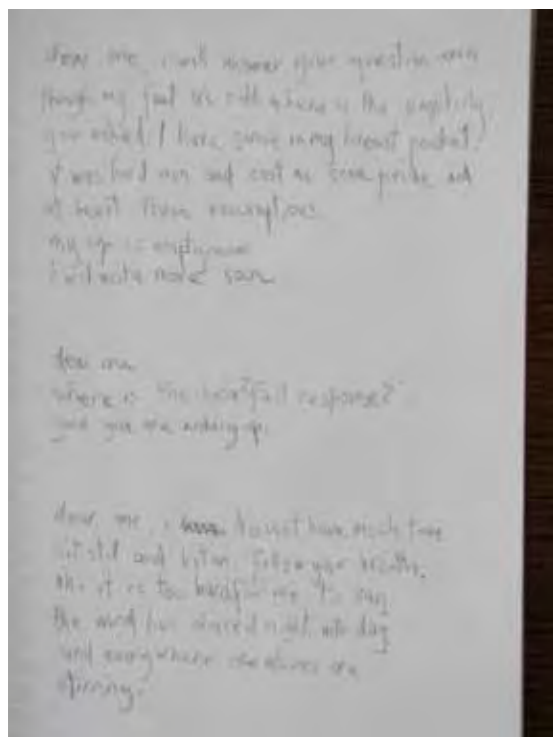 dear me, i will answer your question even
though my feet are cold. where is the simplicity
you asked. I have some in my breast pocket.
it was hard won and cost me some pride and
at least three
my cup is empty now
i will write more soon.
dear me
where is the response?
dear me, i do not have much time
sit still and listen. follow your breath.
it is too hard for me to say
the wind has night into day
and everywhere creatures are
stirring.